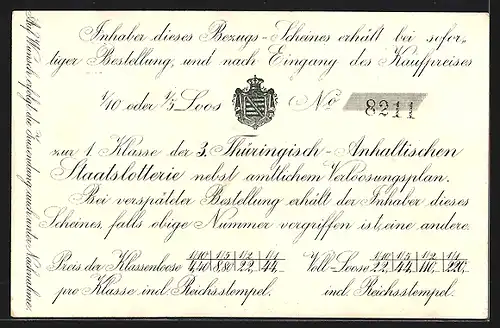 Inhaber dieses Bezugs-Scheines erhält bei sofor-
tiger Bestellung, und nach Eingang des Kaufpreises
1/10 oder 1/5 Loos No 8211
zur 1. Klasse der 3. Thüringisch-Anhaltischen
Staatslotterie nebst amtlichem Verloosungsplan.
Bei verspäteter Bestellung erhält der Inhaber dieses
Scheines, falls obige Nummer vergriffen ist, eine andere.
Preis der Klassenloose 1/10 1/5 1/2 1/1 Voll-Loose 1/10 1/5 1/2 1/1
4,40 8,80 22,- 44,- 22,- 44,- 110,- 220,-
pro Klasse incl. Reichsstempel. incl. Reichsstempel.
Auf Wunsch erfolgt die Zusendung auch unter Nachnahme.